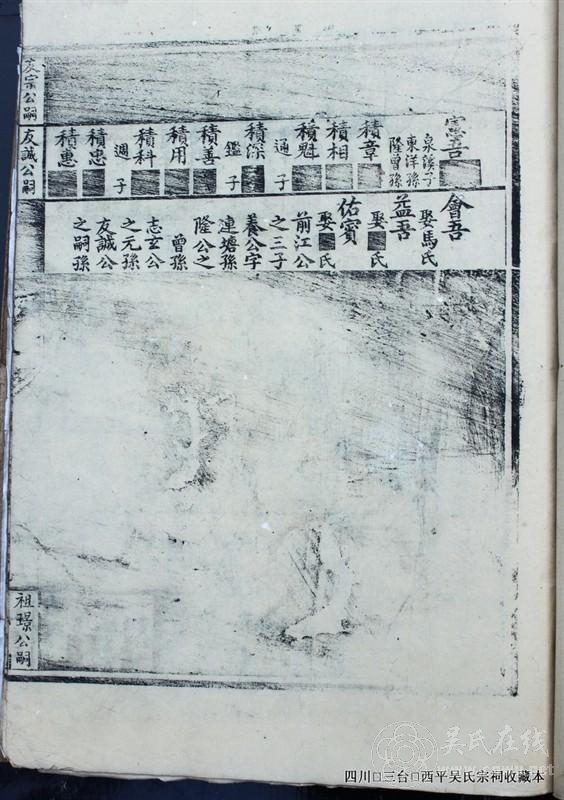 憲吾
泉溪子
東洋孫
隆曾孫
積章
積相
積魁
通子
積深
鑑子
積善
積用
積科
週子
積忠
積惠
會吾
娶馬氏
益吾
娶■氏
佑賓
娶■氏
前江公
之三子
養公字
連塘孫
隆公之
曾孫
志玄公
之元孫
友誠公
之嗣孫
友宗公嗣
友誠公嗣
祖璟公嗣
吴氏在线
www.cnwu.net
四川□三台□西平吴氏宗祠收藏本